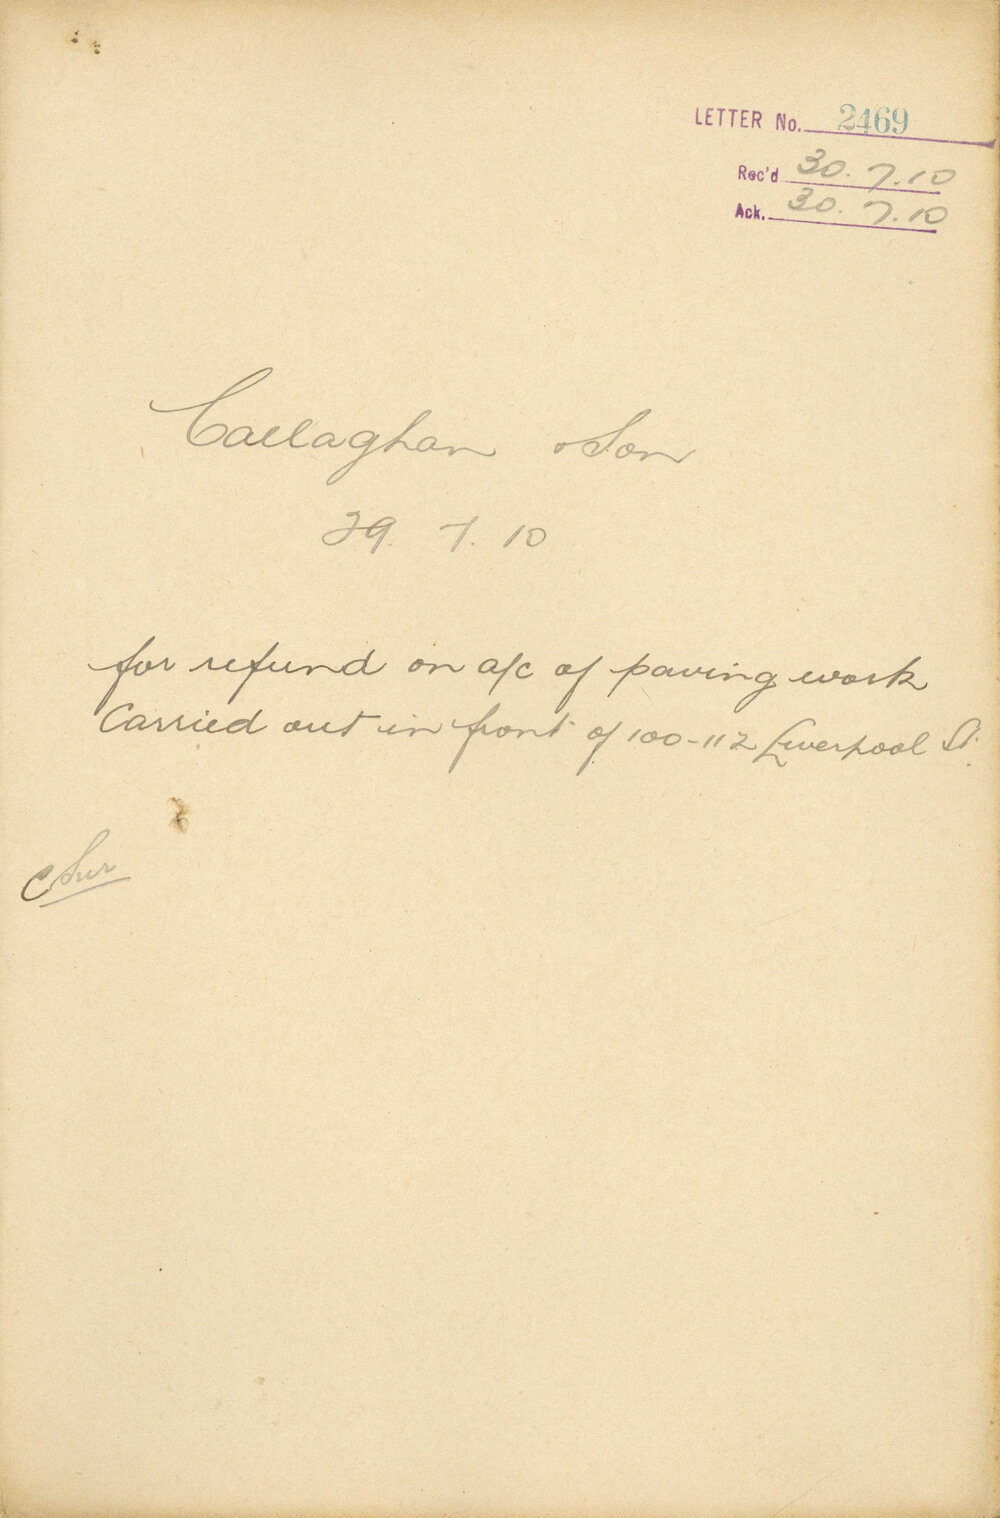 LETTER No. 2469
Rec'd 30.7.10
Ack. 30.7.10
Callaghan & Son
29.7.10
for refund on a/c of paving work
Carried out in front of 100-112 Liverpool St.
C Sur